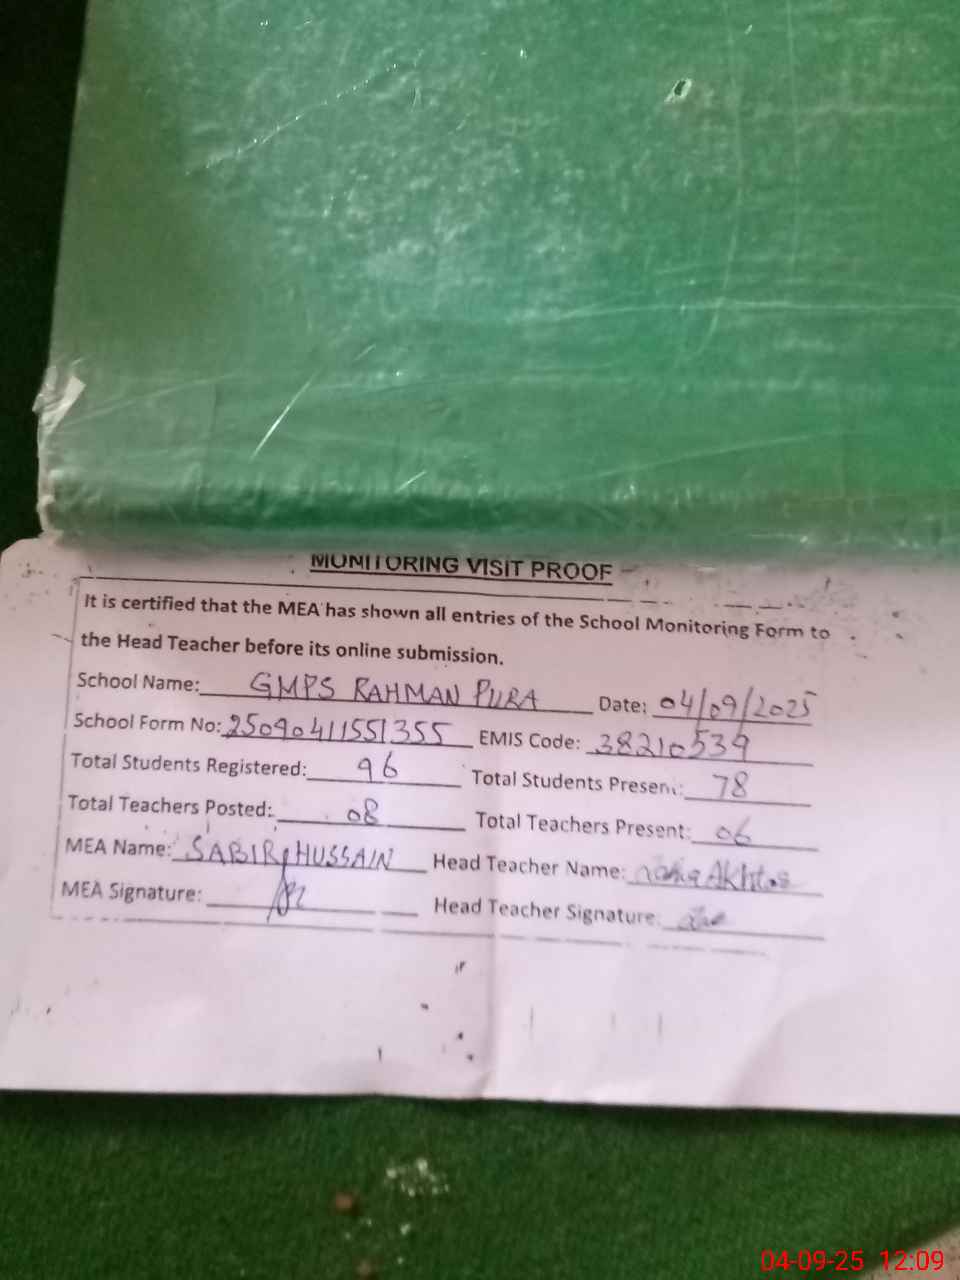 MONITORING VISIT PROOF
It is certified that the MEA has shown all entries of the School Monitoring Form to
the Head Teacher before its online submission.
School Name: GMPS RAHMAN PURA Date: 04/09/2025
School Form No: 25090411551355 EMIS Code: 38210539
Total Students Registered: 96 Total Students Present: 78
Total Teachers Posted: 08 Total Teachers Present: 06
MEA Name: SABIR HUSSAIN Head Teacher Name: Akhtar
MEA Signature: Head Teacher Signature:
04-09-25 12:09